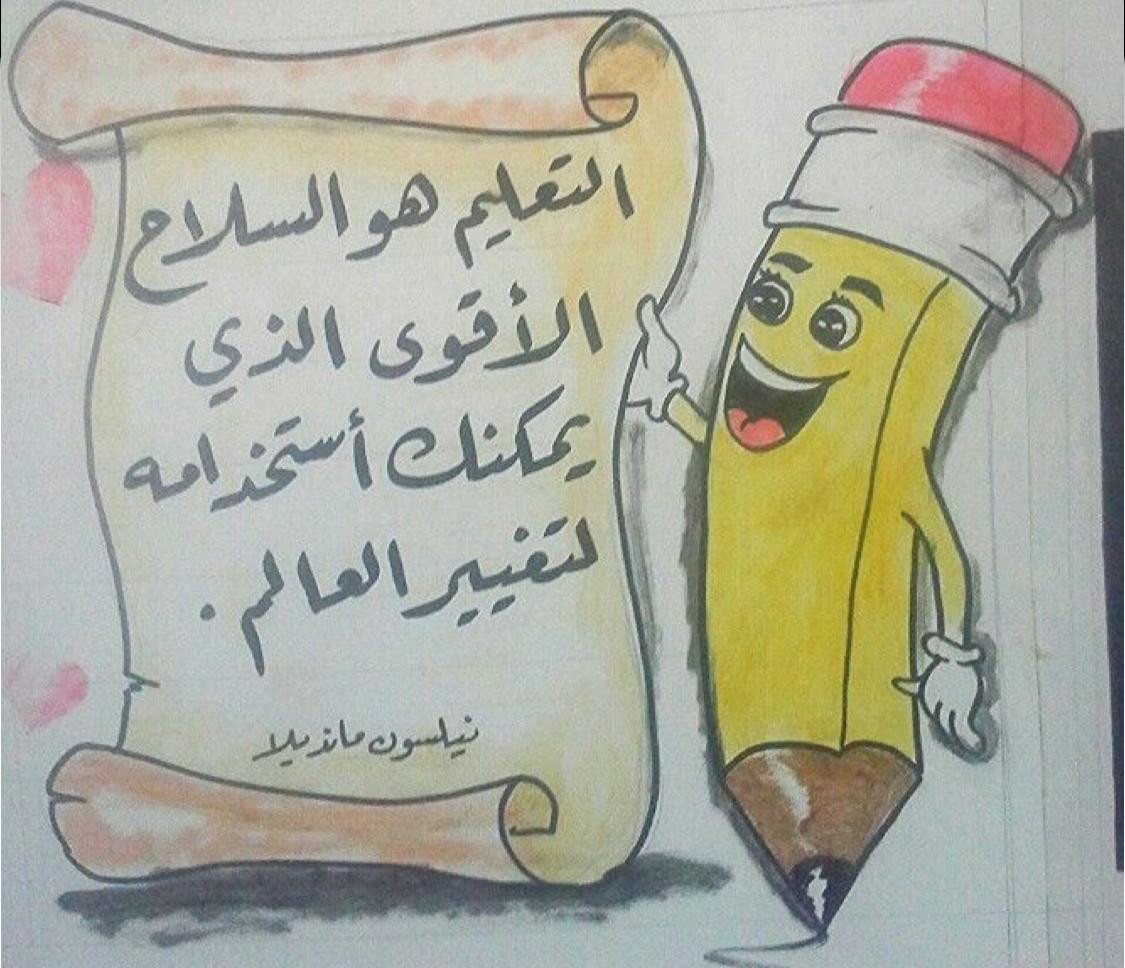 التعليم هو السلاح
الأقوى الذي
يمكنك أستخدامه
لتغيير العالم .
نيلسون مانديلا